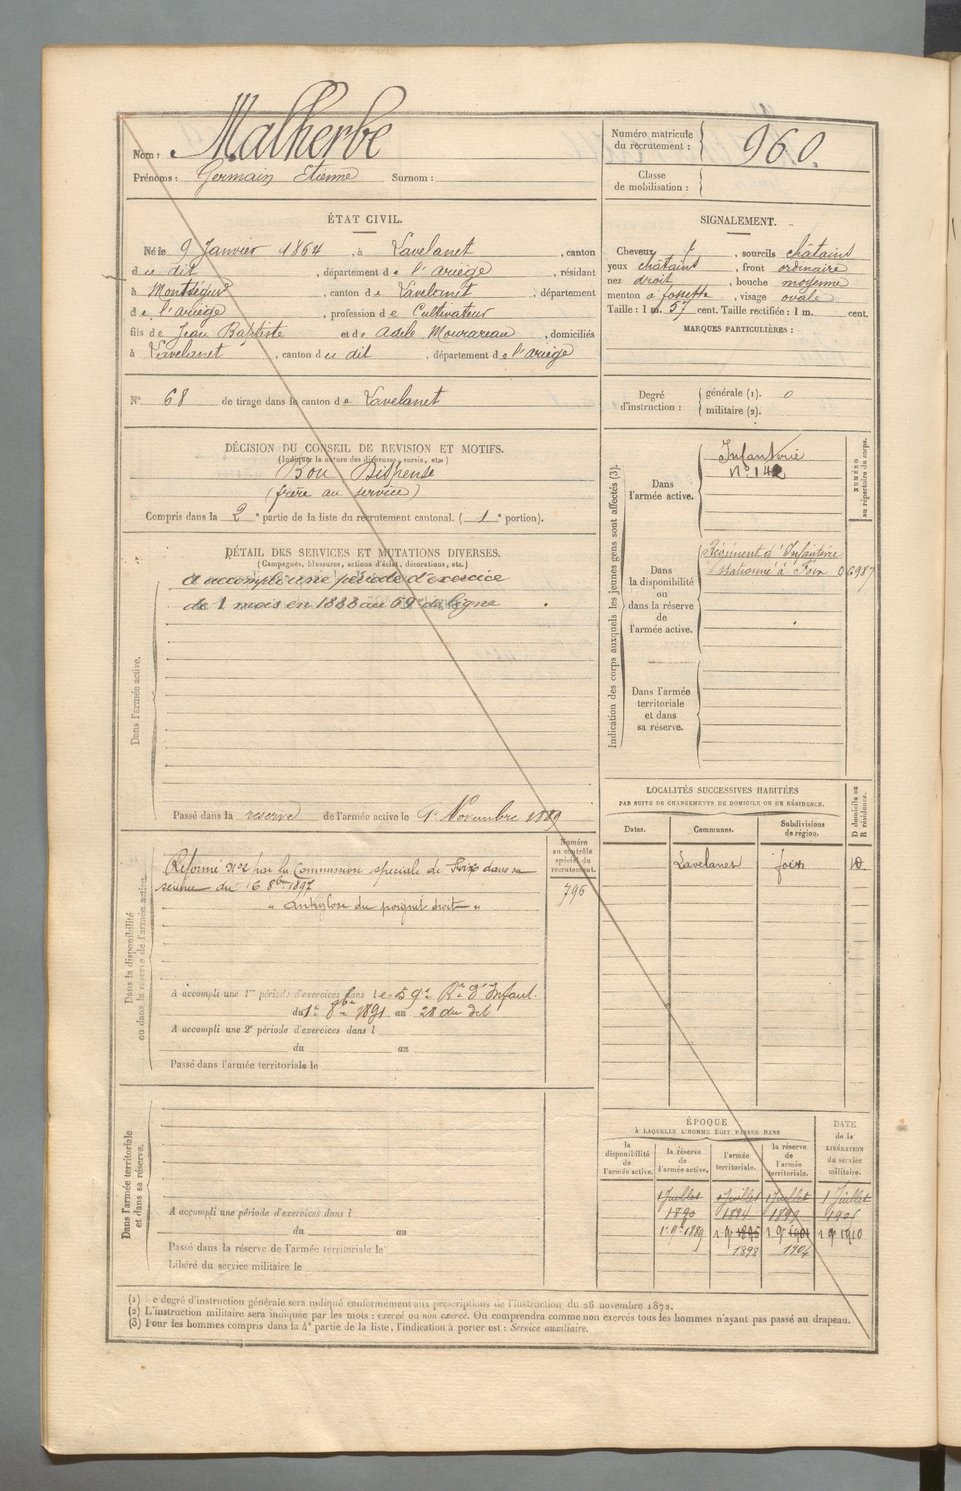 Nom : Malherbe
Prénoms : Germain Etienne Surnom :
Numéro matricule du recrutement : 960.
Classe de mobilisation :
ÉTAT CIVIL.
Né le 9 Janvier 1864, à Lavelanet, canton
du dit, département de l'ariège, résidant
à Montségur, canton de Lavelanet, département
de l'ariège, profession de Cultivateur
fils de Jean Baptiste et de Adèle, domiciliés
à Lavelanet, canton du dit, département de l'ariège
SIGNALEMENT.
Cheveux, sourcils châtains
yeux châtains, front ordinaire
nez droit, bouche moyenne
menton à fossette, visage ovale
Taille : 1 m. 57 cent. Taille rectifiée : 1 m. cent.
MARQUES PARTICULIÈRES :
N° 68 de tirage dans le canton de Lavelanet
Degré d'instruction : générale (1). 0
militaire (2).
DÉCISION DU CONSEIL DE REVISION ET MOTIFS.
(Indiquer la nature des dispenses, sursis, etc.)
Bon Dispensé
(frère au service)
Compris dans la 2e partie de la liste du recrutement cantonal. (1e portion).
DÉTAIL DES SERVICES ET MUTATIONS DIVERSES.
(Campagnes, blessures, actions d'éclat, décorations, etc.)
Dans l'armée active.
A accompli une période d'exercice
de 1 mois en 1888 au 59e de ligne
Passé dans la reserve de l'armée active le 1er Novembre 1889
Indication des corps auxquels les jeunes gens sont affectés (3).
NUMÉRO au répertoire du corps.
Dans l'armée active.
Infanterie
N° 142
Dans la disponibilité ou dans la réserve de l'armée active.
Régiment d'Infanterie
stationné à Foix 06987
Dans l'armée territoriale et dans sa réserve.
Dans la disponibilité ou dans la réserve de l'armée active.
Numéro au contrôle spécial du recrutement.
796
Réformé N°2 par la Commission spéciale de Foix dans sa
séance du 16 8bre 1897
" Ankylose du poignet droit "
A accompli une 1re période d'exercices dans le 59e Rt d'Infant.
du 1er 8bre 1891 au 28 du dit
A accompli une 2e période d'exercices dans l
du au
Passé dans l'armée territoriale le
LOCALITÉS SUCCESSIVES HABITÉES
PAR SUITE DE CHANGEMENTS DE DOMICILE OU DE RÉSIDENCE.
D domicile ou R résidence.
Dates. Communes. Subdivisions de région.
Lavelanet foix D
Dans l'armée territoriale et dans sa réserve.
A accompli une période d'exercices dans l
du au
Passé dans la réserve de l'armée territoriale le
Libéré du service militaire le
ÉPOQUE
À LAQUELLE L'HOMME DOIT PASSER DANS
la disponibilité de l'armée active. la réserve de l'armée active. l'armée territoriale. la réserve de l'armée territoriale.
DATE de la LIBÉRATION du service militaire.
1 Juillet 1 Juillet 1 Juillet 1 Juillet
1890 1894 1899 1905
1. 9e 1889 1 9e 1895 1 9e 1901 1 9e 1910
1898 1904
(1) Le degré d'instruction générale sera indiqué conformément aux prescriptions de l'instruction du 28 novembre 1872.
(2) L'instruction militaire sera indiquée par les mots : exercé ou non exercé. On comprendra comme non exercés tous les hommes n'ayant pas passé au drapeau.
(3) Pour les hommes compris dans la 4e partie de la liste, l'indication à porter est : Service auxiliaire.